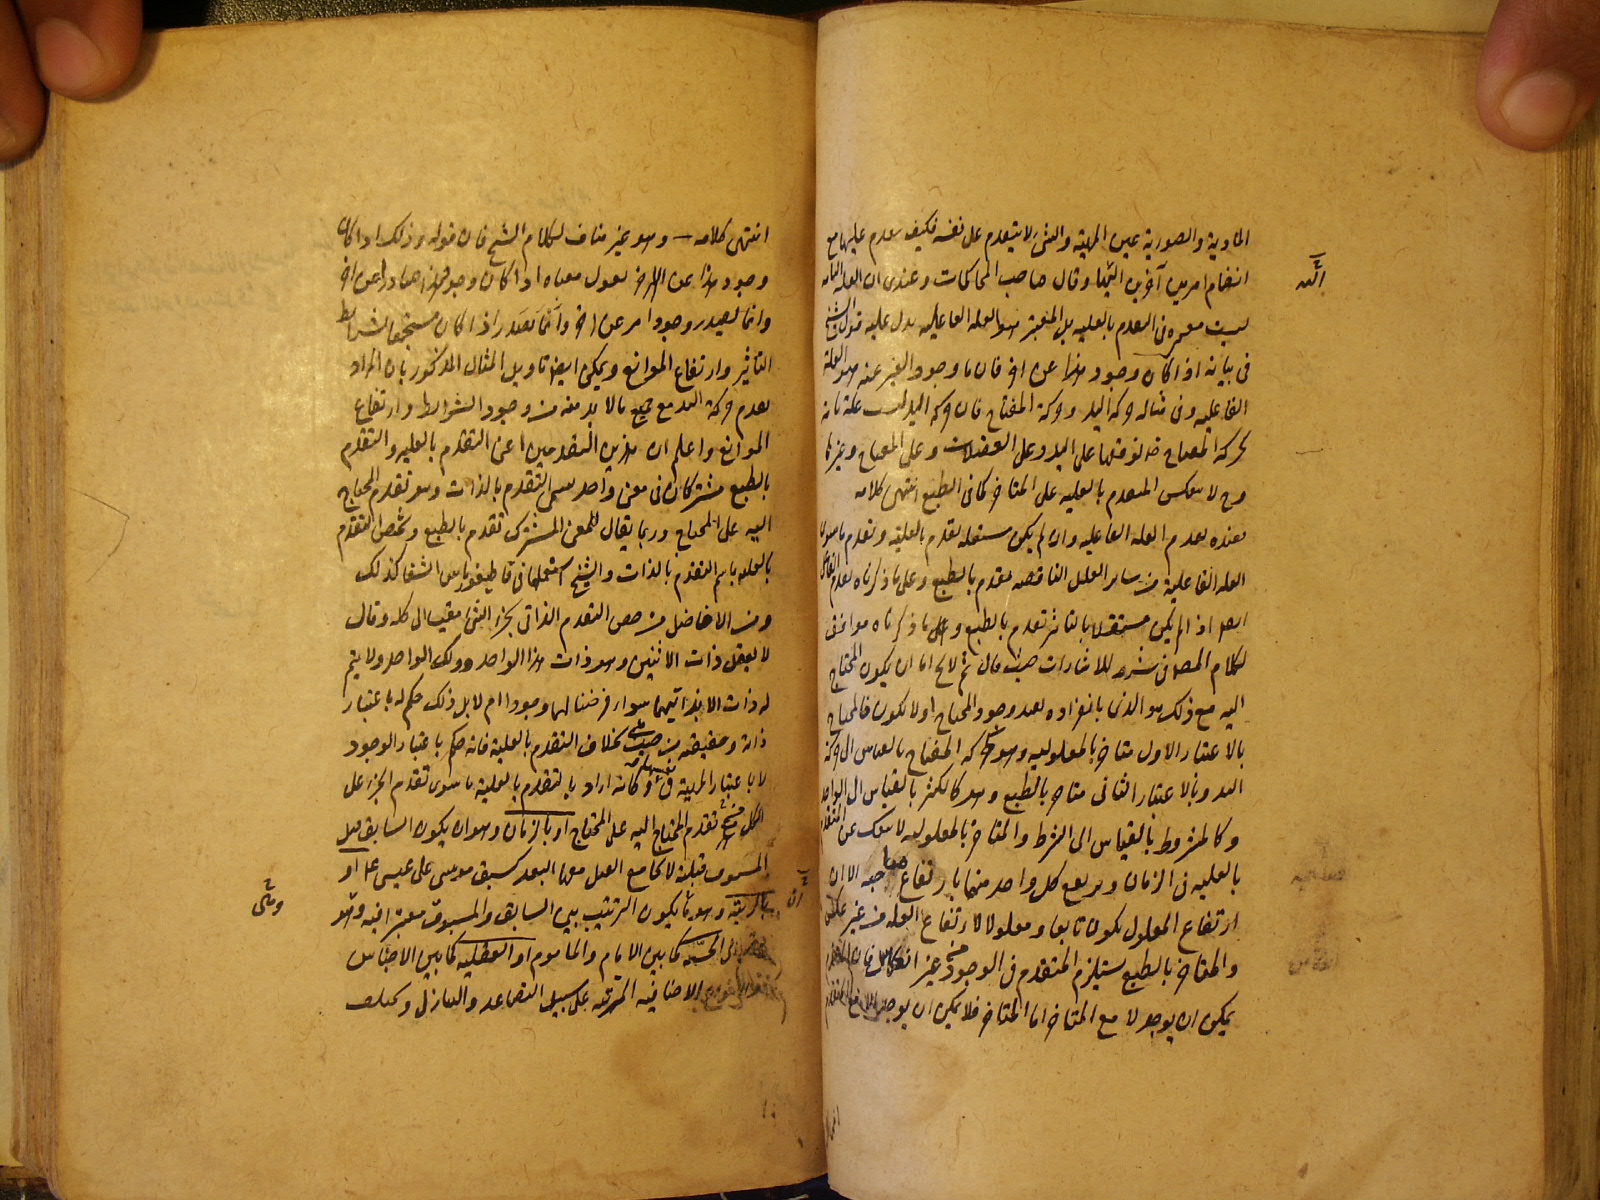 المادية والصورية عين المهية والشئ لا يتقدم على نفسه فكيف يتقدم عليها مع
انضمام امرين آخرين اليها وقال صاحب المحاكمات وعندى ان العلة التامة
ليست معتبرة فى التقدم بالعلية بل المعتبر هو العلة الفاعلية يدل عليه قول الشيخ
فى بيانه اذا كان وجود هذا عن آخر فان ما وجود الغير عنه هو العلة
الفاعلية وفى مثاله حركة اليد وحركة المفتاح فان حركة اليد ليست علة تامة
لحركة المفتاح ضرورة توقفها على اليد وعلى العضلات وعلى المفتاح وغيرها
وح لا ينعكس المتقدم بالعلية على المتأخر كما فى الطبع انتهى كلامه
فعنده تقدم العلة الفاعلية وان لم يكن مستقلة تقدم بالعلية وتقدم ما سوى
العلة الفاعلية من سائر العلل الناقصة تقدم بالطبع وعلى ما ذكرناه تقدم الفاعل
ايضا اذا لم يكن مستقلا بالتاثير تقدم بالطبع وعلى ما ذكرناه موافق
لكلام المص فى شرحه للاشارات حيث قال ثم لا يخ اما ان يكون المحتاج
اليه مع ذلك هو الذى بانفراده يفيد وجود المحتاج او لا يكون فالمحتاج
بالاعتبار الاول متأخر بالمعلولية وهو كحركة المفتاح بالقياس الى حركة
اليد وبالاعتبار الثانى متأخر بالطبع وهو كالكثير بالقياس الى الواحد
وكالمشروط بالقياس الى الشرط والمتأخر بالمعلولية لا ينفك عن المتقدم
بالعلية فى الزمان ويرتفع كل واحد منهما بارتفاع صاحبه الا ان
ارتفاع المعلول يكون تابعا ومعلولا لارتفاع العلة من غير عكس
والمتأخر بالطبع يستلزم المتقدم فى الوجود من غير انعكاس فان المتقدم
يمكن ان يوجد لا مع المتأخر اما المتأخر فلا يمكن ان يوجد الا مع المتقدم
انتهى كلامه وهو غير مناف لكلام الشيخ فان قوله وذلك اذا كان
وجود هذا عن الاخر نقول معناه اذا كان وجود هذا صادرا عن آخر
وانما يصدر وجود امر عن آخر وانما يصدر اذا كان مستجمعا لشرائط
التأثير وارتفاع الموانع ويمكن ايضا تاويل المثال المذكور بان المراد
تقدم حركة اليد مع جميع ما لا بد منه من وجود الشرائط وارتفاع
الموانع واعلم ان هذين التقدمين اعنى التقدم بالعلية والتقدم
بالطبع مشتركان فى معنى واحد يسمى التقدم بالذات وهو تقدم المحتاج
اليه على المحتاج وربما يقال للمعنى المشترك تقدم بالطبع ويخص التقدم
بالعلية باسم التقدم بالذات والشيخ استعملها فى قاطيغورياس الشفا كذلك
ومن الافاضل من خص التقدم الذاتى بجزء الشئ مقيسا الى كله وقال
لا يعقل ذات الاثنين وهو ذات هذا الواحد وذلك الواحد ولا يتم
له ذات الا بذاتيهما سواء فرضنا لهما وجودا ام لا بل ذلك حكم له باعتبار
ذاته وحقيقته من حيث هى بخلاف التقدم بالعلية فانه حكم باعتبار الوجود
لا باعتبار المهية فى نفسها وكأنه اراد بالتقدم بالعلية ما سوى تقدم الجزء على
الكل من تقدم المحتاج اليه على المحتاج او بالزمان وهو ان يكون السابق قبل
المسبوق قبلية لا يجامع القبل معها البعد كسبق موسى على عيسى ع او
بالرتبة وهو ان يكون الترتيب بين السابق والمسبوق معتبرا فيه وهو
الحسية كما بين الامام والماموم او العقلية كما بين الاجناس
الاضافية المترتبة على سبيل التصاعد والتنازل ويختلف